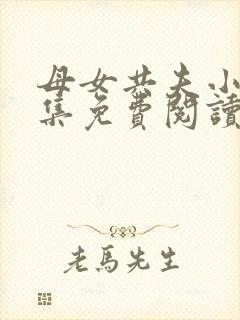 母女共夫小
集免費閱讀
老馬先生